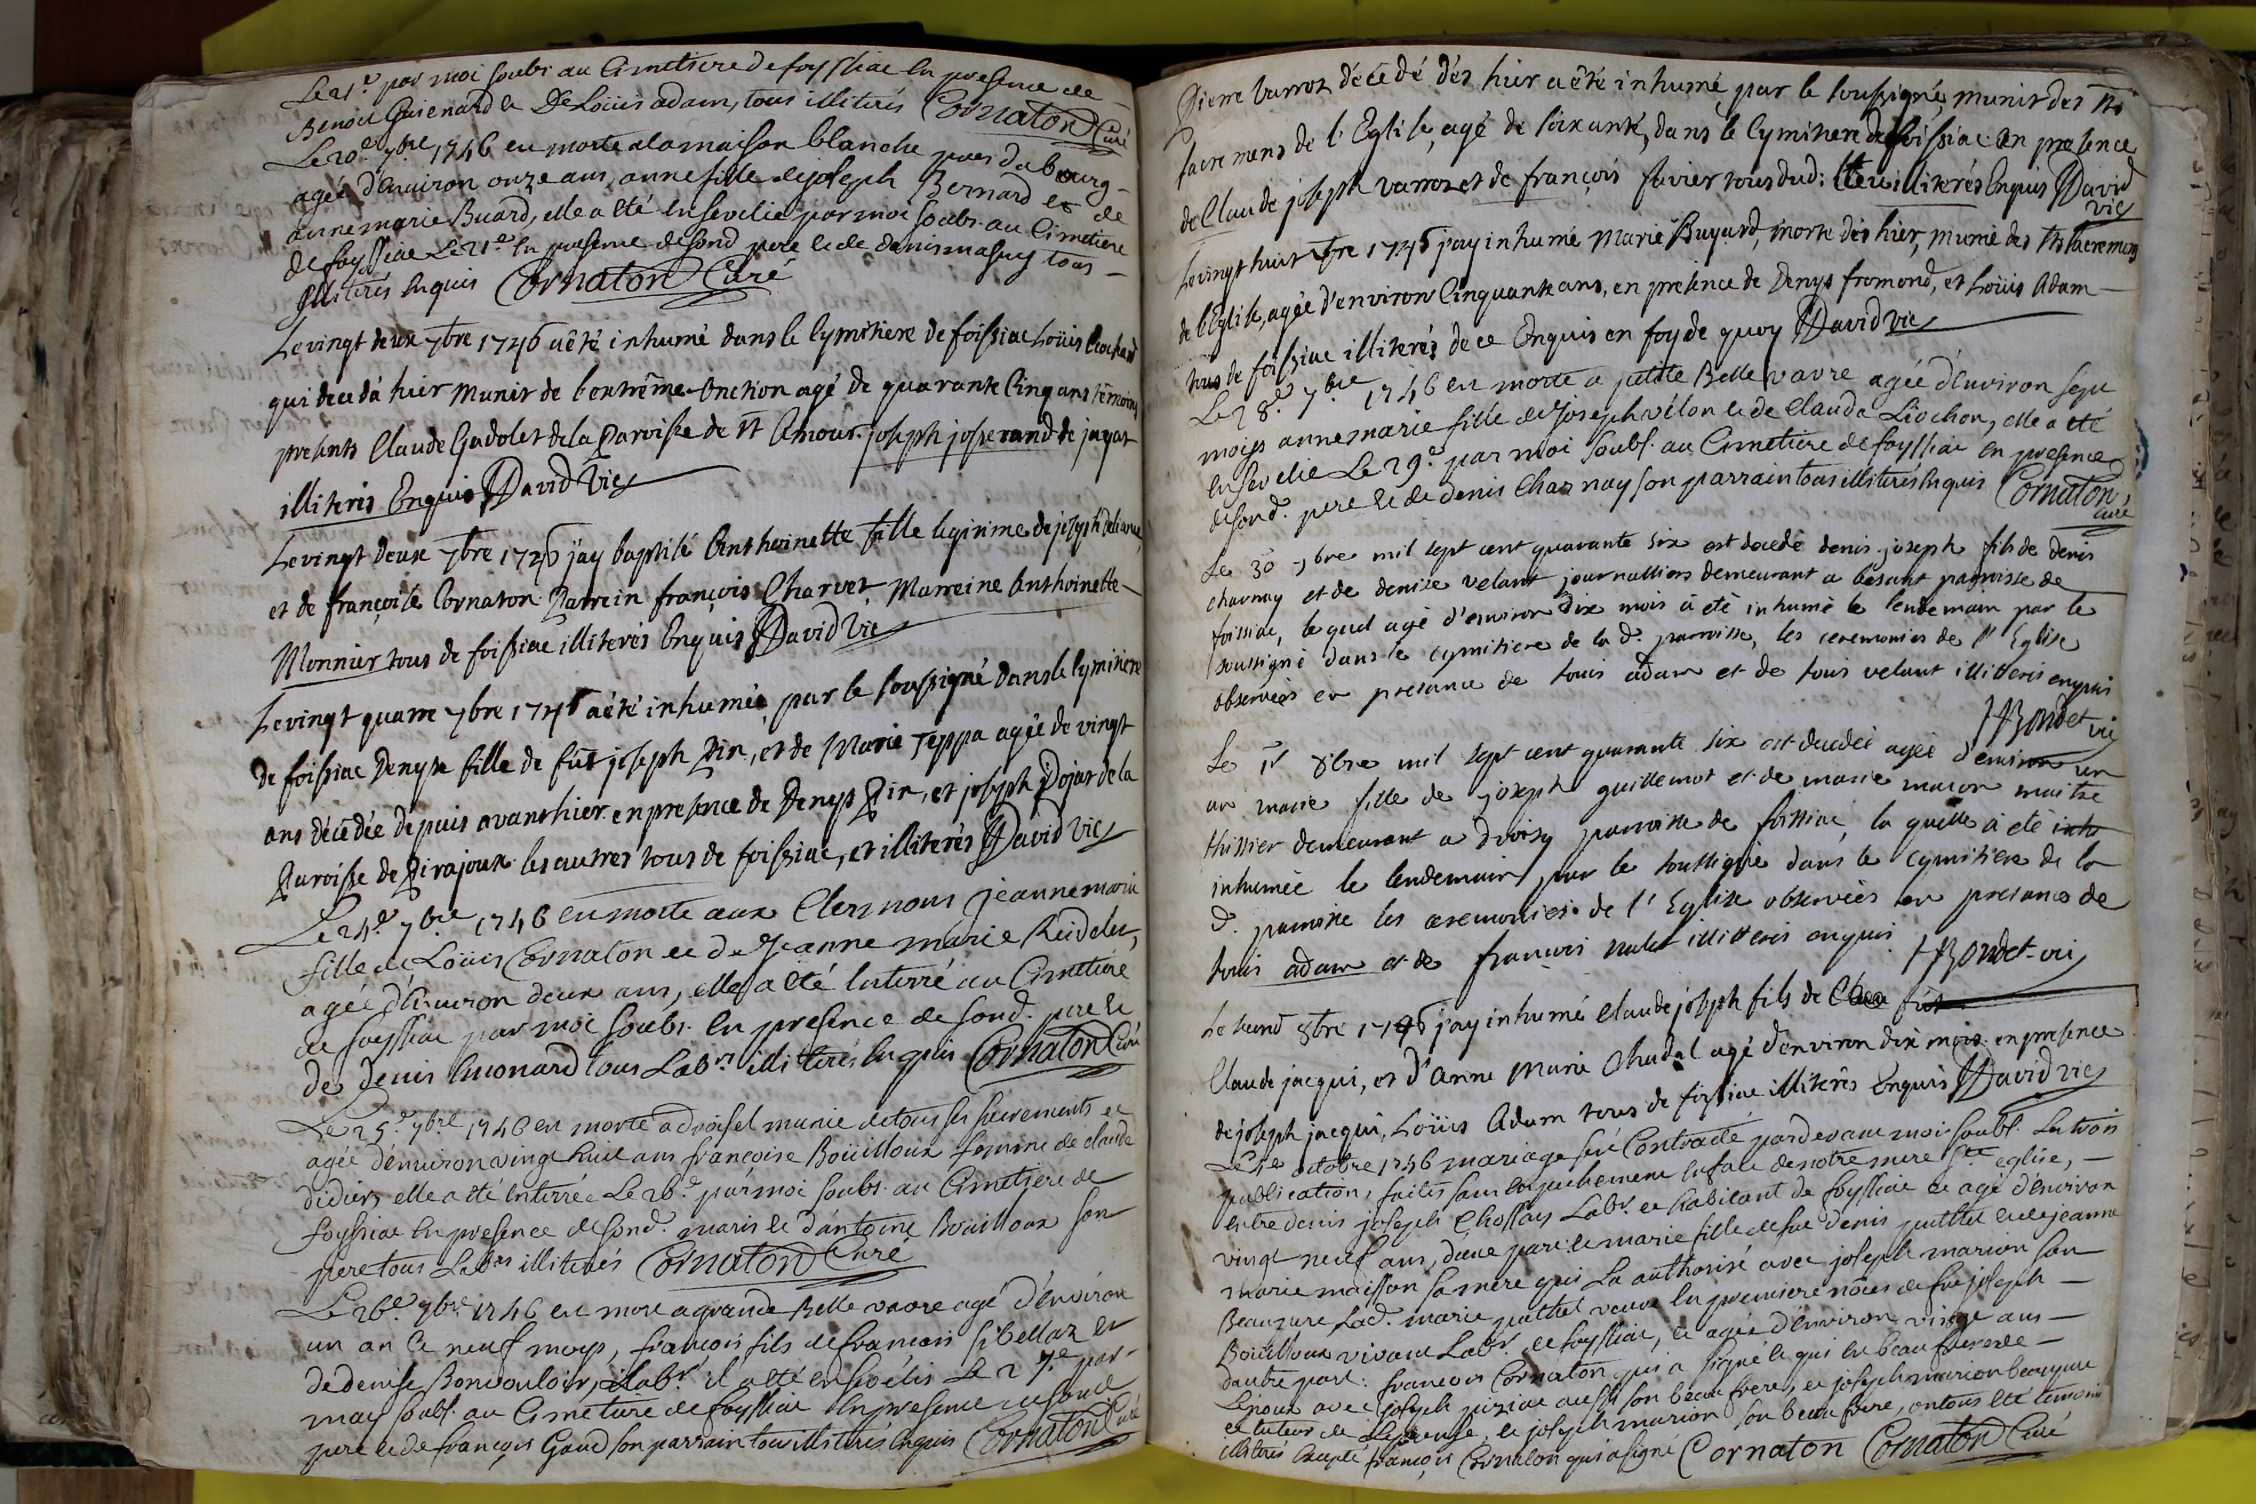 Le 21e par moi soubs. au Cimetiere de foyssiac en presence de
Benoit Guienard & De Loüis adam, tous illiterés Cornaton Curé
Le 20e 7bre 1746 est morte a la maison blanche pres du bourg
agée d'Environ onze ans, anne fille de joseph Bernard et de
anne marie Buard, elle a été Ensevelie par moi soubs. au Cimetiere
de foyssiac Le 21e En presence de sond pere et de denis masuy tous
illiterés Enquis Cornaton Curé
Le vingt deux 7bre 1746 a êté inhumé dans le Cymitiere de foissiac Loüis
qui deceda hier munir de l'extrême Onction agé de quarante Cinq ans têmoins
presents Claude Gadolet de la Paroisse de St Amour. joseph josserand de jayat
illiterés Enquis David Vic
Le vingt deux 7bre 1746 j'ay baptisé Anthoinette fille legitime de joseph
et de françoise Cornaton Parrein françois Charvet Marreine Anthoinette
Monnier tous de foissiac illiterés Enquis David Vic
Le vingt quatre 7bre 1746 a êté inhumée, par le soussigné dans le Cymitiere
de foissiac Denyse fille de fût joseph Pin, et de Marie Teppa agée de vingt
ans décêdée depuis avanthier en presence de Denys Pin, et joseph Pojar de la
Paroisse de Pirajoux les autres tous de foissiac, et illiterés David Vic
Le 24e 7bre 1746 est morte aux Clermons jeanne marie
fille de Loüis Cornaton et De Jeanne Marie Reidelet,
agée d'Environ deux ans, elle a été Enterré au Cimetiere
de foyssiac par moi soubs. En presence de sond. pere et
de Denis Guionard tous Labrs illiterés Enquis Cornaton Curé
Le 25e 7bre 1746 est morte a droisel munie de tous ses sacrements et
agée d'Environ vingt huit ans françoise Boüilloux femme de claude
didier, elle a été Enterrée Le 26e par moi soubs. au Cimetiere de
foyssiac En presence de sond. maris et d'antoine Bouilloux son
pere tous Labrs illiterés Cornaton Curé
Le 26e 7bre 1746 est mort a grande Belle vavre agé d'Environ
un an et neuf moys, françois fils de françois Sibellaz et
de denise Bonvouloir, Labr il a été enseveli Le 27e par
moy soubs. au Cimetiere de foyssiac En presence de sond
pere et de françois Gaud son parrain tous illiterés Enquis Cornaton Curé
Pierre Varroz décêdé dés hier a êté inhumé, par le soussigné, munir des Sts
sacremens de l'Eglise, agé de soixante, dans le Cymitiere de foissiac en presence
de Claude joseph Varroz et de françois favier tous dud: lieu illiterés Enquis David
vic
Le vingt huit 7bre 1746 j'ay inhumé Marie Buyard, morte dês hier, munie des Sts Sacremens
de l'Eglise, agée d'environ Cinquante ans, en presence de Denys fromond, et Loüis Adam
tous de foissiac illiterés de ce Enquis en foy de quoy David vic
Le 28e 7bre 1746 est morte a petite Belle vavre agée d'Environ sept
moiys anne marie fille de Joseph vélon et de Clauda Liochon, elle a été
Ensevelie Le 29e par moi soubs. au Cimetiere de foyssiac en presence
de sond. pere et de denis Charnay son parrain tous illiterés Enquis Cornaton
Curé
Le 30 7bre mil sept cent quarante six est decedé denis joseph fils de denis
charnay et de denise velant journalliers demeurant a besant parroisse de
foissiac, lequel agé d'environ dix mois à eté inhumé le lendemain par le
soussigné dans le cymitiere de la d. parroisse, les ceremonies de l'Eglise
observées en presance de louis adam et de louis velant illitteris enquis
Bondet vic
Le 1r 8bre mil sept cent quarante six est decedée agée d'environ un
an marie fille de joseph guillemot et de marie maron maitre
thissier demeurant a droisy parroisse de foissiac, la quelle à eté inh
inhumée le lendemain par le soussigné dans le cymitiere de la
d. parroisse les ceremonies de l'Eglise observées en presance de
louis adam et de francois nalet illitteris enquis Bondet vic
Le second 8bre 1746 j'ay inhumé Claude joseph fils de fût
Claude jacqui, et d'Anne Marie Chudal agé d'environ dix mois. en presence
de joseph jacqui, Loüis Adam tous de foissiac illiterés Enquis David vic
Le 4e octobre 1746 mariage fut Contracté pardevant moi soubs. Les trois
publications faites sans Empechement En face de notre mere Ste eglise,
Entre denis joseph Chossay Labr. et habitant de foyssiac et agé d'Environ
vingt neuf ans, d'une part: et marie fille de fut denis puttet et de jeanne
marie maisson sa mere qui La authorisé avec joseph marion son
Beaupere Lad. marie puttet veuve En premiere nôces de fut joseph
Boüilloux vivant Labr. de foyssiac, et agée d'Environ vingt ans
d'autre part: françois Cornaton qui a signé et qui Est beau frere de
L'epoux avec joseph piziac aussi son beau frere, et joseph marion beaupere
et tuteur de L'epouse, et joseph marion son beau frere, ont tous été temoins
illiterés Excepté françois Cornaton qui a signé Cornaton Cornaton Curé